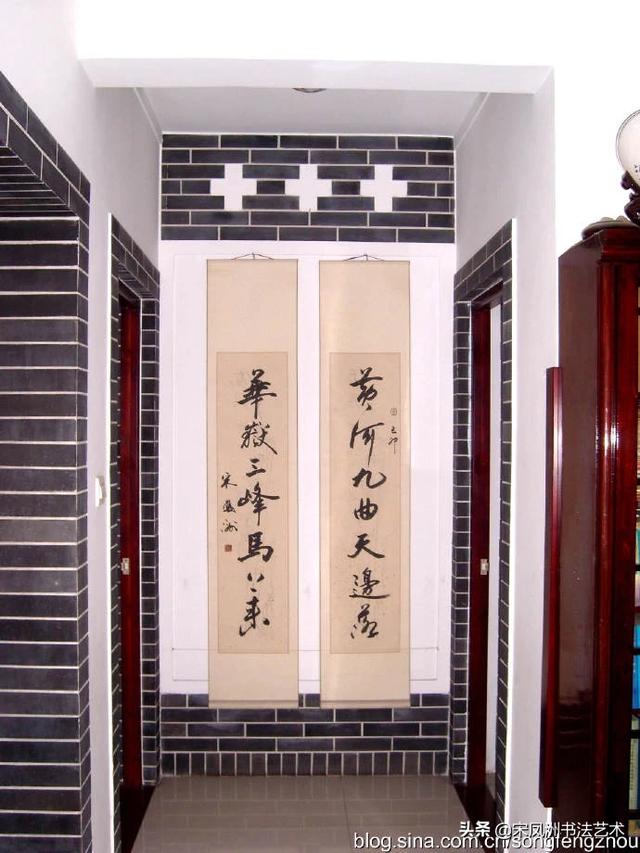 黄河九曲天邊落
己卯
華嶽三峰馬上來
宋鳳洲
头条 @宋凤洲书法艺术
blog.sina.com.cn/songfengzhou